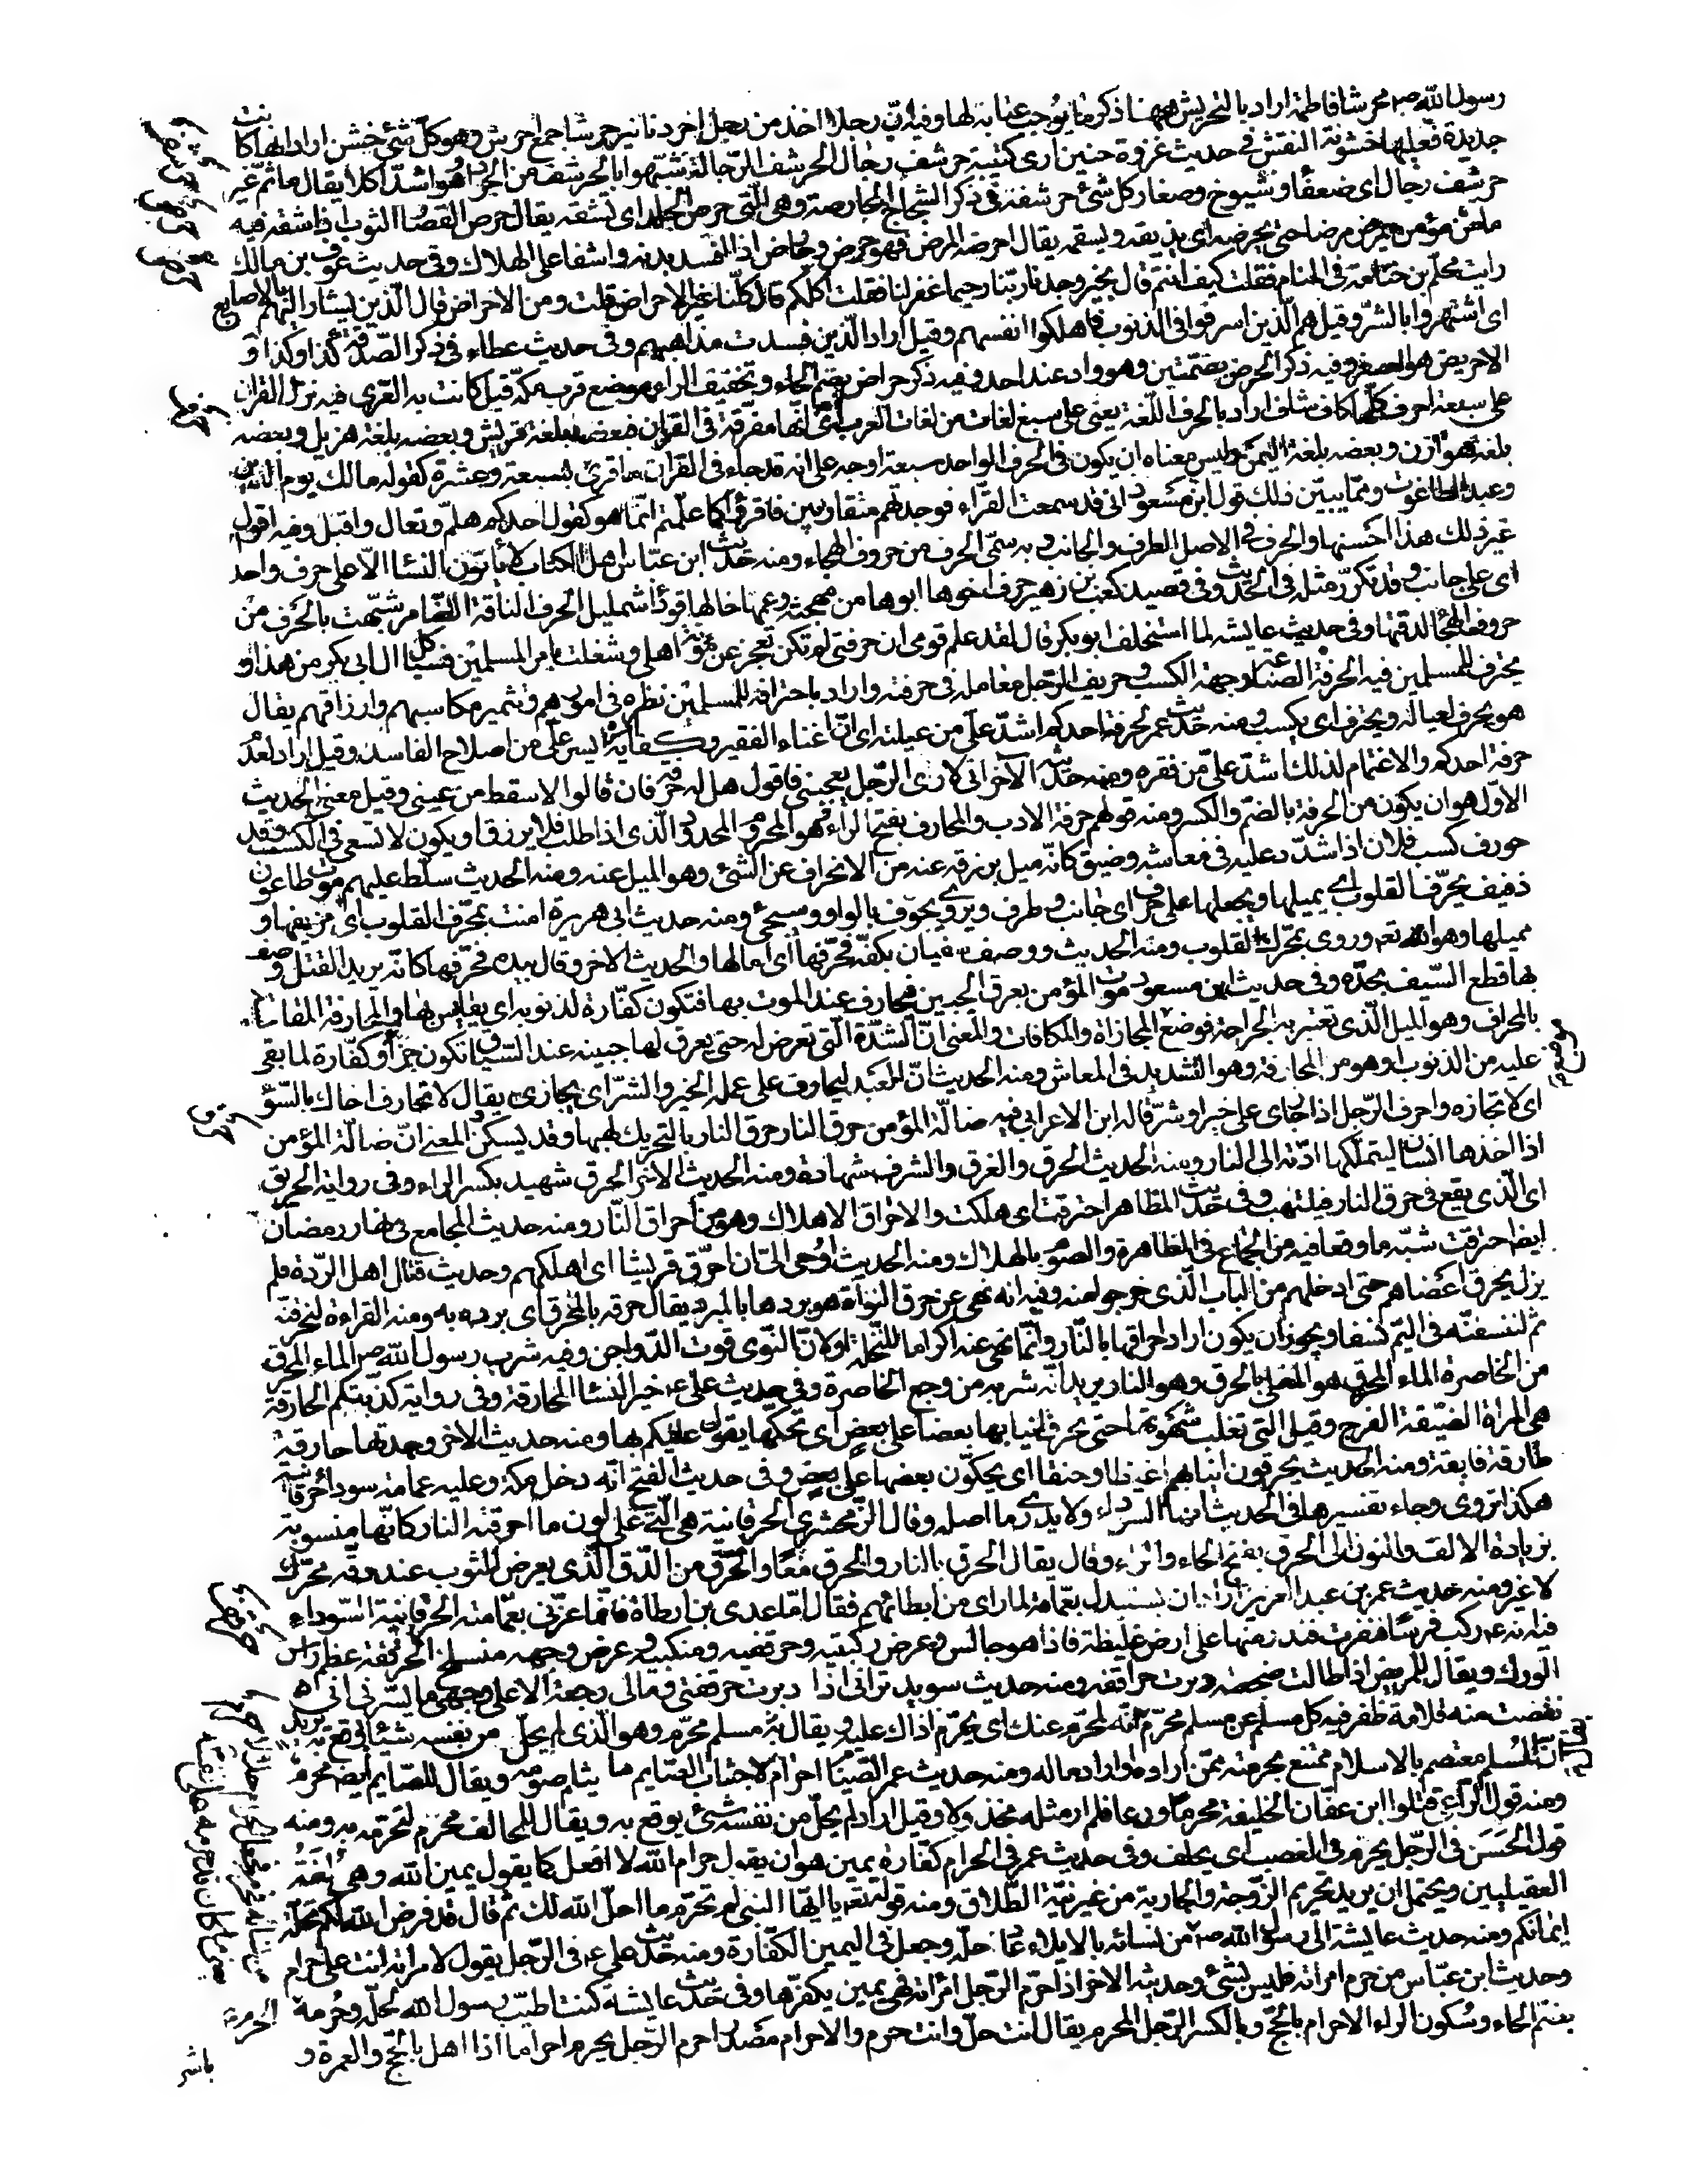 رسول الله صم محرشا فاطمة اراد بالتحريش ههنا ذكر ما يوجب عتابه لها وفيه ان رجلا اخذ من رجل اخر دنانير حرشا جمع احرش وهو كل شئ خشن اراد انها كانت
جديدة فعليها خشونة النقش في حديث غزوة حنين ارى كتيبة حرشف رجال الحرشف الرجالة شبهوا بالحرشف من الجراد وهو اشد اكلا يقال ما ثم غير
حرشف رجال اى ضعفاء وشيوخ وصغار كل شئ حرشفه في ذكر الشجاج الحارصة وهى التى تحرص الجلد اى تشقه يقال حرص القصار الثوب اذا شقه فيه
ما من مؤمن يمرض مرضا حتى يحرضه اى يذيقه ويسقمه يقال احرضه المرض فهو حرض وحارض اذا افسد بدنه واشفا على الهلاك وفى حديث عوف بن مالك
رايت محلم بن جثامة فى المنام فقلت كيف انتم قال بخير وجدنا ربنا رحيما غفر لنا فقلت اكلكم قال كلنا غير الاحراض قلت ومن الاحراض قال الذين يشار اليهم بالاصابع
اى اشتهروا بالشر وقيل هم الذين اسرفوا فى الذنوب فاهلكوا انفسهم وقيل اراد الذين فسدت مذاهبهم وفى حديث عطاء فى ذكر الصدقة كذا وكذا و
الاحريض هو العصفر وفيه ذكر الحرض بضمتين وهو واد عند احد وفيه ذكر حراض بضم الحاء وتخفيف الراء موضع قرب مكة قيل كانت به العزى فيه نزل القران
على سبعة احرف كلها كاف شاف اراد بالحرف اللغة يعنى على سبع لغات من لغات العرب اى انها مفرقة فى القران فبعضه بلغة قريش وبعضه بلغة هزيل وبعضه
بلغة هوازن وبعضه بلغة اليمن وليس معناه ان يكون فى الحرف الواحد سبعة اوجه على انه قد جاء فى القران ما قرئ بسبعة وعشرة كقوله مالك يوم الدين
وعبد الطاغوت ومما يبين ذلك قول ابن مسعود انى قد سمعت القراء فوجدتهم متقاربين فاقرؤا كما علمتم انما هو كقول احدكم هلم وتعال واقبل وفيه اقوال
غير ذلك هذا احسنها والحرف فى الاصل الطرف والجانب وبه سمى الحرف من حروف الهجاء ومنه حديث ابن عباس اهل الكتاب لا يأتون النسا الا على حرف واحد
اى على جانب وقد تكرر مثله فى الحديث وفى قصيد كعب بن زهير حرف اخوها ابوها من مهجنة وعمها خالها قوداء شمليل الحرف الناقة الضامر شبهت بالحرف من
حروف الهجاء لدقتها وفى حديث عايشه لما استخلف ابو بكر قال لقد علم قومى ان حرفتى لم تكن تعجز عن مؤنة اهلى وشغلت بامر المسلمين فسياكل ال ابى بكر من هذا و
يحترف للمسلمين فيه الحرفة الصناعة وجهة الكسب وحريف الرجل معامله فى حرفته واراد باحترافه للمسلمين نظره فى امورهم وتثمير مكاسبهم وارزاقهم يقال
هو يحرف لعياله ويحترف اى يكسب ومنه حديث عمر لحرفة احدكم اشد على من عيلته اى ان اغناء الفقير وكفايته ايسر على من اصلاح الفاسد وقيل اراد لعدم
حرفة احدكم والاغتمام لذلك اشد على من فقره ومنه حديثه الاخر انى لارى الرجل يعجبنى فاقول هل له حرفة فان قالوا لا سقط من عينى وقيل معنى الحديث
الاول هو ان يكون من الحرفة بالضم والكسر ومنه قولهم حرفة الادب والمحارف بفتح الراء هو المحروم المحدود الذى اذا طلب فلا يرزق او يكون لا تسعى فى الكسب وقد
حورف كسب فلان اذا شدد عليه فى معاشه وضيق كانه ميل برزقه عنه من الانحراف عن الشئ وهو الميل عنه ومنه الحديث سلط عليهم موت طاعون
ذفيف يحرف القلوب اى يميلها ويجعلها على حرف اى جانب وطرف ويروى يحوف بالواو وسيجئ ومنه حديث ابى هريرة امنت بمحرف القلوب اى مزيغها و
مميلها وهو الله تعم وروى بمحرك القلوب ومنه الحديث ووصف سفيان بكفه فحرفها اى امالها والحديث الاخر وقال بيده فحرفها كانه يريد القتل وصف
بها قطع السيف بحده وفى حديث ابن مسعود موت المؤمن بعرق الجبين فيحارف عند الموت بها فتكون كفارة لذنوبه اى يقايس بها والمحارفة المقايسة
بالمحراف وهو الميل الذى تعتبر به الجراحة فوضع المجازاة والمكافات والمعنى ان الشدة التى تعرض له حتى يعرق لها جبينه عند السياق تكون جزاء وكفارة لما بقى
عليه من الذنوب او هو من المحارفة وهو التشديد فى المعاش ومنه الحديث ان العبد ليحارف على عمله الخير والشر اى يجازى يقال لا تحارف اخاك بالسوء
اى لا تجازه واحرف الرجل اذا جازى على خير او شر قاله ابن الاعرابى فيه ضالة المؤمن حرق النار حرق النار بالتحريك لهبها وقد يسكن المعنى ان ضالة المؤمن
اذا اخذها انسان ليتملكها ادته الى النار ومنه الحديث الحرق والغرق والشرق شهادة ومنه الحديث الاخر الحرق شهيد بكسر الراء وفى رواية الحريق
اى الذى يقع فى حرق النار فيلتهب وفى حديث المظاهر احترقت اى هلكت والاحراق الاهلاك وهو من احراق النار ومنه حديث المجامع فى نهار رمضان
ايضا احترقت شبه ما وقعا فيه من الجماع فى المظاهرة والصوم بالهلاك ومنه الحديث اوحى الى ان احرق قريشا اى اهلكهم وحديث قتال اهل الردة فلم
يزل يحرق اعضاهم حتى ادخلهم من الباب الذى خرجوا منه وفيه انه نهى عن حرق النواة هو بردها بالمبرد يقال حرقه بالمحرق اى برده به ومنه القراءة لنحرقنه
ثم لننسفنه فى اليم نسفا ويجوز ان يكون اراد احراقها بالنار وانما نهى عنه اكراما للنخلة او لان النوى قوت الدواجن وفيه شرب رسول الله صم الماء المحرق
من الخاصرة الماء المحرق هو المغلى بالحرق وهو النار يريد انه شربه من وجع الخاصرة وفى حديث على ع خير النسا الحارقة وفى رواية كذبتكم الحارقة
هى المراة الضيقة الفرج وقيل التى تغلب شهوتها حتى تحرق انيابها بعضا على بعض اى تحكها يقول عليكم بها ومنه حديث الاخر وجدتها حارقة
طارقة فايقة ومنه الحديث يحرقون انيابهم غيظا وحنقا اى يحكون بعضها على بعض وفى حديث الفتح انه دخل مكة وعليه عمامة سوداء حرقانية
هكذا تروى وجاء تفسيرها فى الحديث انها السوداء ولا يدرى ما اصله وقال الزمحشرى الحرقانية هى التى على لون ما احرقته النار كانها منسوبة
بزيادة الالف والنون الى الحرق بفتح الحاء والراء وقال يقال الحرق بالنار والحرق معا والحرق من الدق الذى يعرض للثوب عند دقه محرك
لا غير ومنه حديث عمر بن عبد العزيز اراد ان يستبدل بعماله لما راى من ابطائهم فقال اما عدى بن ارطاة فانما غرنى بعمامته الحرقانية السوداء
فيه انه ع ركب فرسا فنفرت فندر منها على ارض غليظة فاذا هو جالس وعرض ركبتيه وحرقفتيه ومنكبيه وعرض وجهه منسلخ الحرقفة عظم راس
الورك ويقال للمريض اذا طالت ضجعته دبرت حراقفه ومنه حديث سويد ترانى اذا دبرت حرقفتى ومالى رجعة الا على وجهى ما يسرنى انى
نقصت منه قلامة ظفر فيه كل مسلم عن مسلم محرم انه لمحرم عنك اى يحرم اذاك عليه ويقال مسلم محرم وهو الذى لم يحل من نفسه شيئا يوقع به يريد
ان المسلم معتصم بالاسلام ممتنع بحرمته ممن اراده واراد ماله ومنه حديث عمر الصيام احرام لاجتناب الصايم ما يثلم صومه ويقال للصايم ايضا محرم
ومنه قول الراعى قتلوا ابن عفان الخليفة محرما ودعا فلم ار مثله مخذولا وقيل اراد لم يحل من نفسه شئ يوقع به ويقال للمحالف محرم لتحرمه به ومنه
قول الحسن فى الرجل يحرم فى الغضب اى يحلف وفى حديث عمر فى الحرام كفارة يمين هو ان يقول حرام الله لا افعل كما يقول يمين الله وهى لغة
العقيليين ويحتمل ان يريد تحريم الزوجة والجارية من غير نية الطلاق ومنه قوله تعم يا ايها النبى لم تحرم ما احل الله لك ثم قال قد فرض الله لكم تحلة
ايمانكم ومنه حديث عايشة الى رسول الله صم من نسائه بالايلاء وجعل فى اليمين الكفارة ومنه حديث على ع فى الرجل يقول لامراته انت على حرام
وحديث ابن عباس من حرم امراته فليس بشئ وحديثه الاخر اذا حرم الرجل امرأته فهى يمين يكفرها وفى حديث عايشة كنت اطيب رسول الله لحله وحرمه
بضم الحاء وسكون الراء الاحرام بالحج وبالكسر الرجل المحرم يقال انت حل وانت حرم والاحرام مصدر احرم الرجل يحرم احراما اذا اهل بالحج والعمرة و
باشر